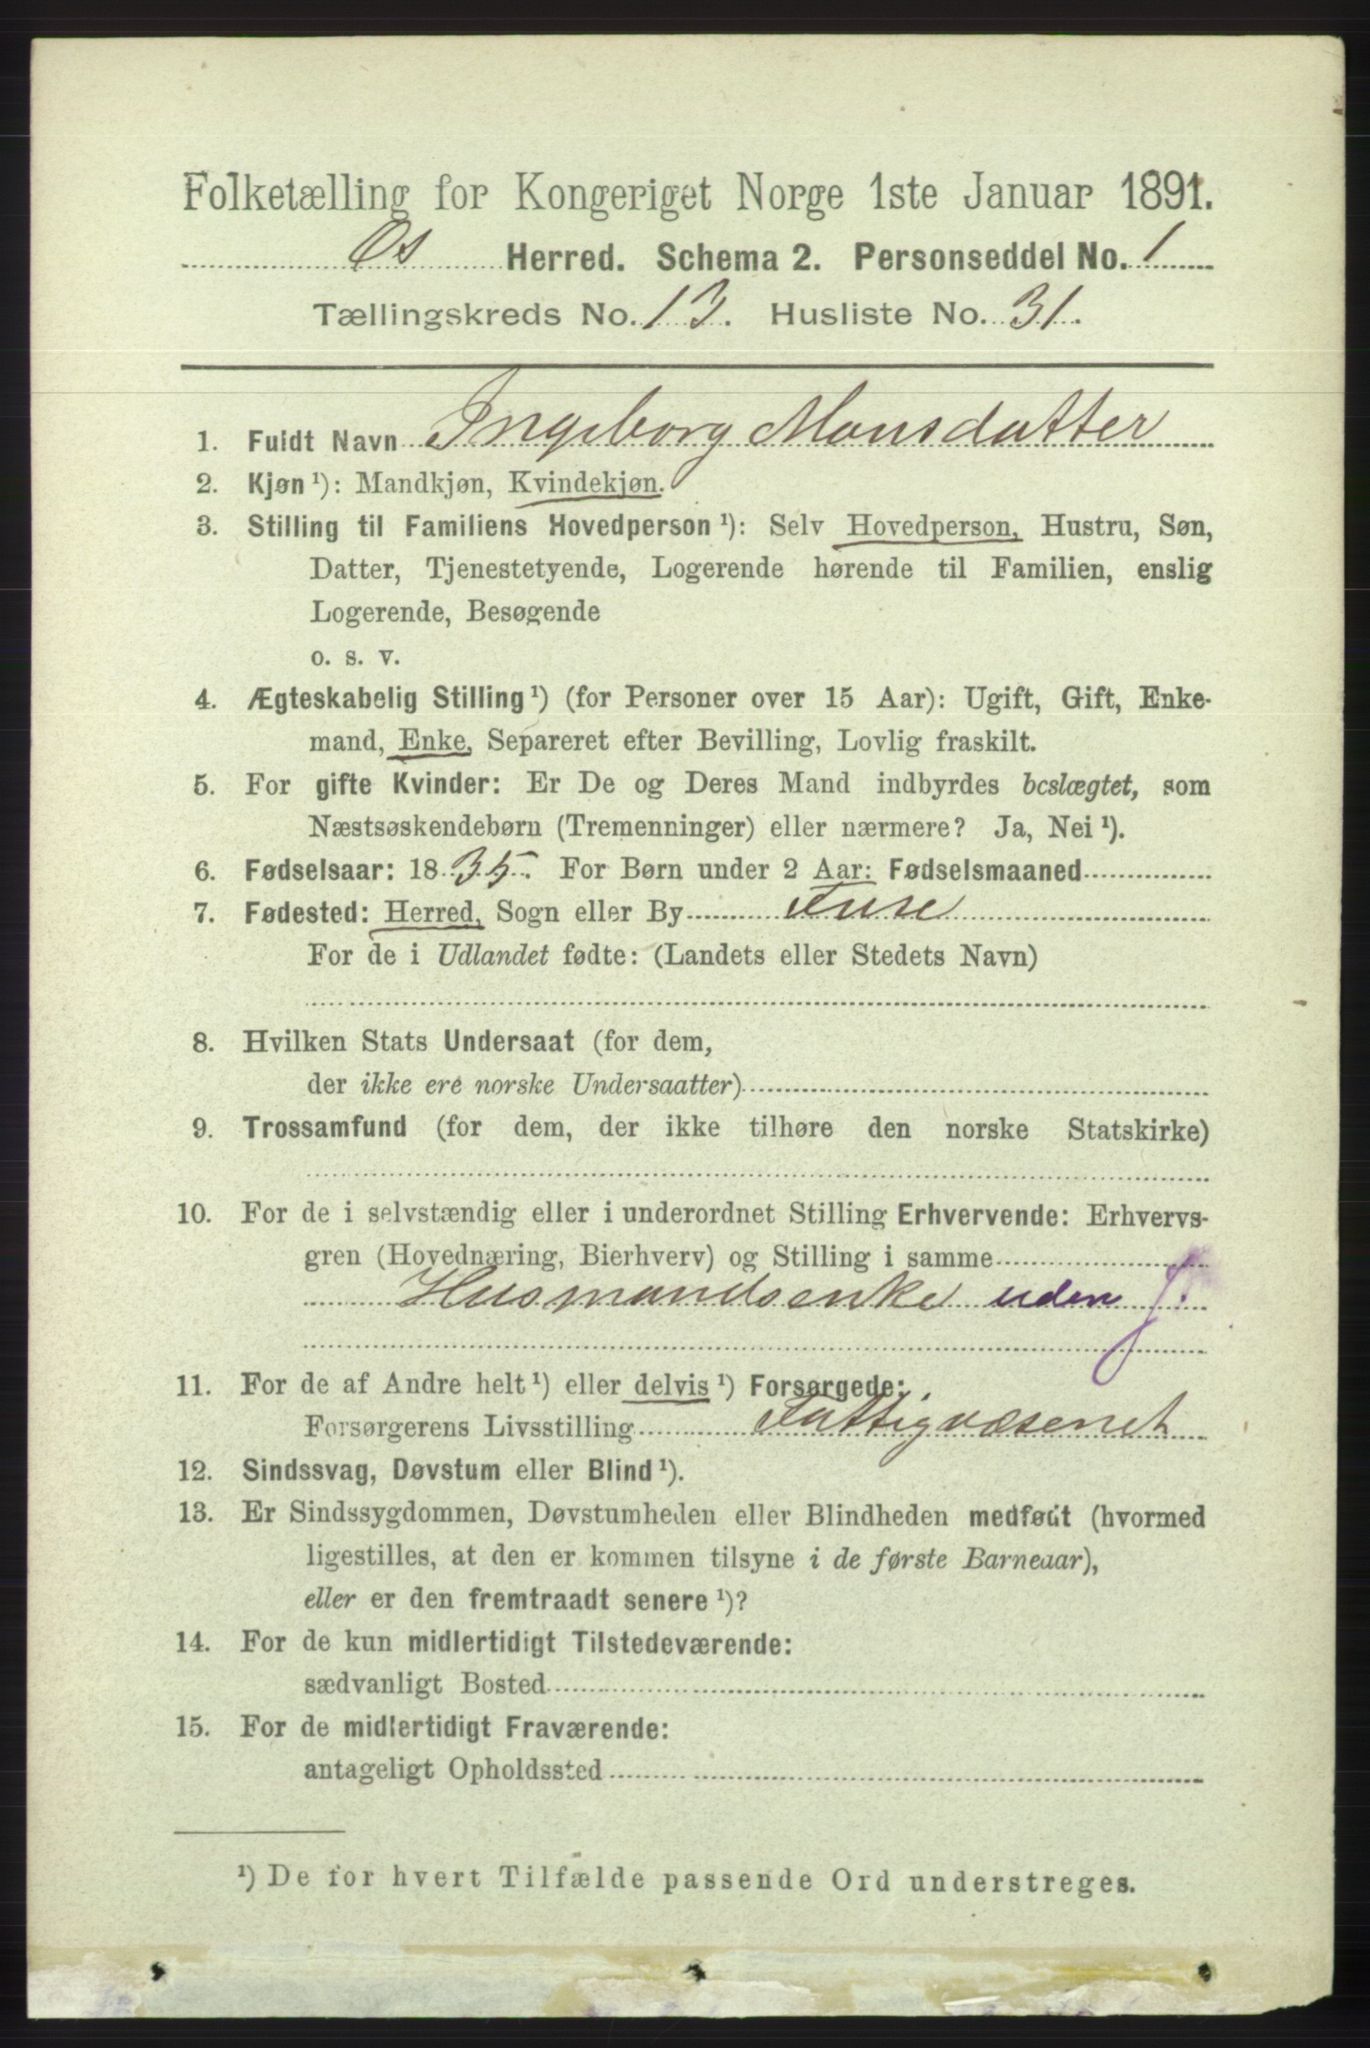 Folketælling for Kongeriget Norge 1ste Januar 1891.
Os Herred. Schema 2. Personseddel No. 1
Tællingskreds No. 13. Husliste No. 31.
1. Fuldt Navn Ingeborg Monsdatter
2. Kjøn ¹): Mandkjøn, Kvindekjøn.
3. Stilling til Familiens Hovedperson ¹): Selv Hovedperson, Hustru, Søn,
Datter, Tjenestetyende, Logerende hørende til Familien, enslig
Logerende, Besøgende
o. s. v.
4. Ægteskabelig Stilling ¹) (for Personer over 15 Aar): Ugift, Gift, Enke-
mand, Enke, Separeret efter Bevilling, Lovlig fraskilt.
5. For gifte Kvinder: Er De og Deres Mand indbyrdes beslægtet, som
Næstsøskendebørn (Tremenninger) eller nærmere? Ja, Nei ¹).
6. Fødselsaar: 1835. For Børn under 2 Aar: Fødselsmaaned
7. Fødested: Herred, Sogn eller By Fuse
For de i Udlandet fødte: (Landets eller Stedets Navn)
8. Hvilken Stats Undersaat (for dem,
der ikke ere norske Undersaatter)
9. Trossamfund (for dem, der ikke tilhøre den norske Statskirke)
10. For de i selvstændig eller i underordnet Stilling Erhvervende: Erhvervs-
gren (Hovednæring, Bierhverv) og Stilling i samme
Husmandsenke uden J.
11. For de af Andre helt ¹) eller delvis ¹) Forsørgede:
Forsørgerens Livsstilling Fattigvæsenet
12. Sindssvag, Døvstum eller Blind ¹).
13. Er Sindssygdommen, Døvstumheden eller Blindheden medfødt (hvormed
ligestilles, at den er kommen tilsyne i de første Barneaar),
eller er den fremtraadt senere ¹)?
14. For de kun midlertidigt Tilstedeværende:
sædvanligt Bosted
15. For de midlertidigt Fraværende:
antageligt Opholdssted
¹) De for hvert Tilfælde passende Ord understreges.